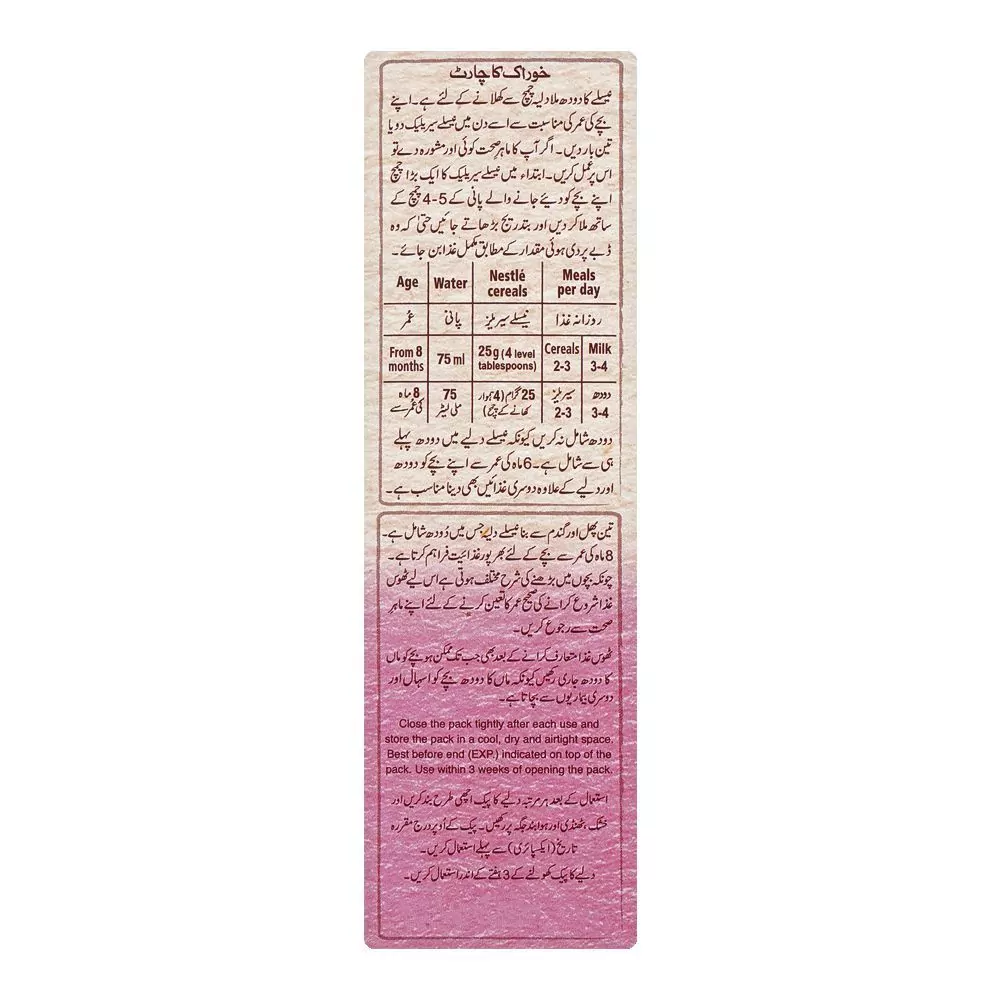 خوراک کا چارٹ
نیسلے کا دودھ ملا دلیہ چمچ سے کھلانے کے لئے ہے۔ اپنے
بچے کی عمر کی مناسبت سے اسے دن میں نیسلے سیریلیک دو یا
تین بار دیں۔ اگر آپ کا ماہرِ صحت کوئی اور مشورہ دے تو
اس پر عمل کریں۔ ابتداء میں نیسلے سیریلیک کا ایک بڑا چمچ
اپنے بچے کو دیئے جانے والے پانی کے 5-4 چمچ کے
ساتھ ملا کر دیں اور بتدریج بڑھاتے جائیں حتیٰ کہ وہ
ڈبے پر دی ہوئی مقدار کے مطابق مکمل غذا بن جائے۔
Age Water Nestlé cereals Meals per day
عمر پانی نیسلے سیریلز روزانہ غذا
From 8 months 75 ml 25g (4 level tablespoons) Cereals 2-3 Milk 3-4
8 ماہ کی عمر سے 75 ملی لیٹر 25 گرام (4 ہموار کھانے کے چمچ) سیریلز 2-3 دودھ 3-4
دودھ شامل نہ کریں کیونکہ نیسلے دلیے میں دودھ پہلے
ہی سے شامل ہے۔ 6 ماہ کی عمر سے اپنے بچے کو دودھ
اور دلیے کے علاوہ دوسری غذائیں بھی دینا مناسب ہے۔
تین پھل اور گندم سے بنا نیسلے دلیہ جس میں دُودھ شامل ہے۔
8 ماہ کی عمر سے بچے کے لئے بھرپور غذائیت فراہم کرتا ہے۔
چونکہ بچوں میں بڑھنے کی شرح مختلف ہوتی ہے اس لیے ٹھوس
غذا شروع کرانے کی صحیح عمر کا تعین کرنے کے لئے اپنے ماہر
صحت سے رجوع کریں۔
ٹھوس غذا متعارف کرانے کے بعد بھی جب تک ممکن ہو بچے کو ماں
کا دودھ جاری رکھیں کیونکہ ماں کا دودھ بچے کو اسہال اور
دوسری بیماریوں سے بچاتا ہے۔
Close the pack tightly after each use and
store the pack in a cool, dry and airtight space.
Best before end (EXP.) indicated on top of the
pack. Use within 3 weeks of opening the pack.
استعمال کے بعد ہر مرتبہ دلیے کا پیک اچھی طرح بند کریں اور
خشک، ٹھنڈی اور ہوا بند جگہ پر رکھیں۔ پیک کے اُوپر درج مقررہ
تاریخ (ایکسپائری) سے پہلے استعمال کریں۔
دلیے کا پیک کھولنے کے 3 ہفتے کے اندر استعمال کریں۔